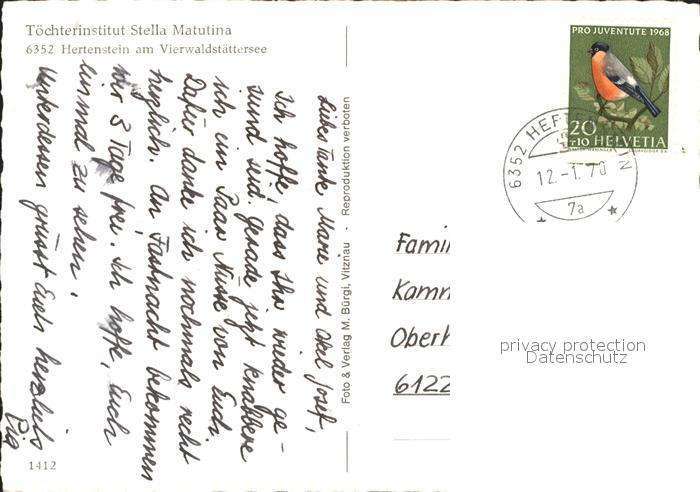 Töchterinstitut Stella Matutina
6352 Hertenstein am Vierwaldstättersee
Liebe Tante Marie und Onkel Josef,
Ich hoffe, dass Ihr wieder ge-
sund seid. Gerade jetzt knabbere
ich ein Paar Nüsse von Euch.
Dafür danke ich nochmals recht
herzlich. An Fastnacht bekommen
wir 3 Tage frei. Ich hoffe, Euch
einmal zu sehen.
Unterdessen grüsst Euch herzlich
Pia
1412
Foto & Verlag M. Bürgi, Vitznau - Reproduktion verboten
PRO JUVENTUTE 1968
20
+10 HELVETIA
6352 HERTENSTEIN
12.-1.70
7a
Famil
Kamm
Oberk
6122
privacy protection
Datenschutz